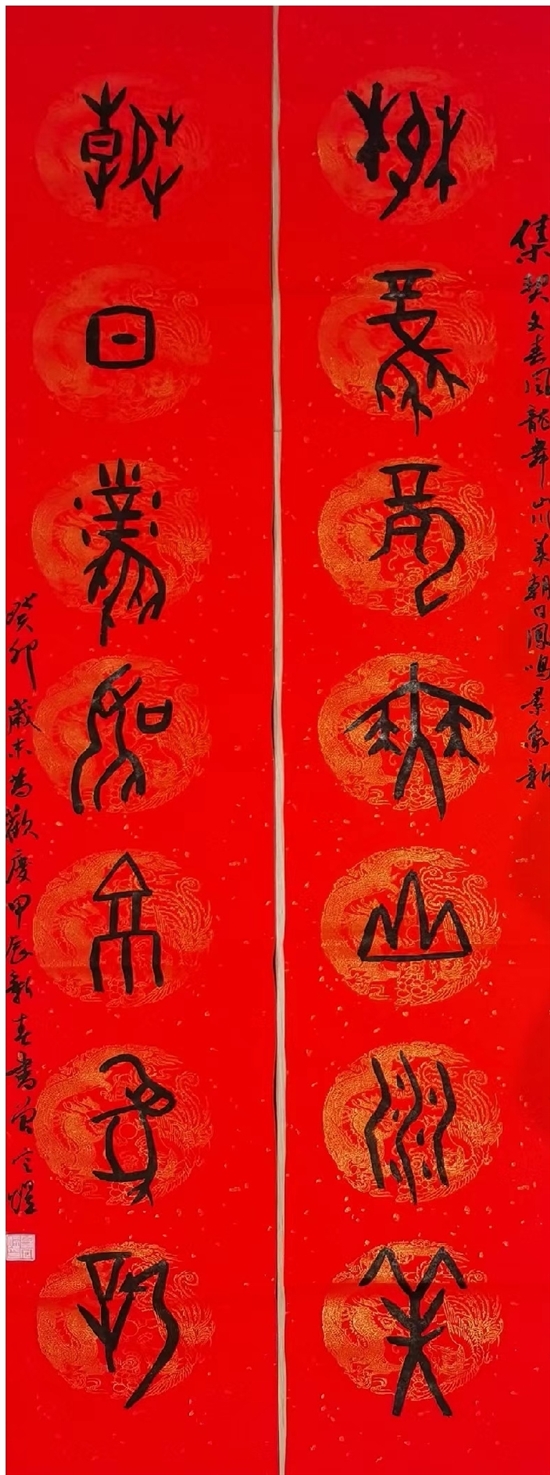 集契文春風龍舞山川美朝日鳳鳴景象新
春風龍舞山川美
朝日鳳鳴景象新
癸卯歲末為歡慶甲辰新春書